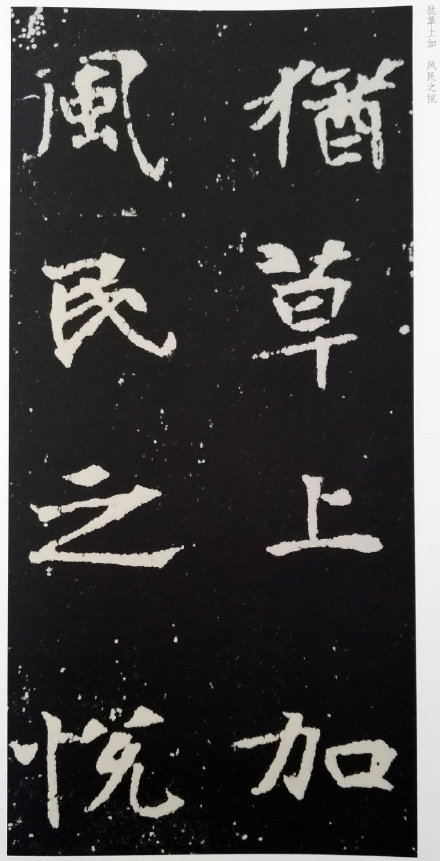 犹草上加　风民之悦
猶草上加
風民之悦